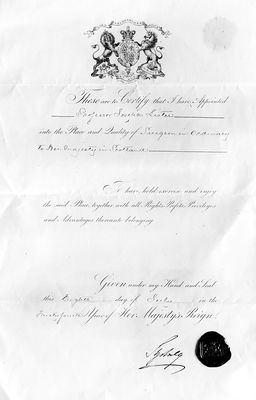 These are to Certify that I have Appointed
Professor Joseph Lister
into the Place and Quality of Surgeon in Ordinary
to Her Majesty in Scotland
To have, hold, exercise and enjoy
the said Place, together with all Rights, Profits, Privileges
and Advantages thereunto belonging
Given under my Hand and Seal
this day of in the
Year of Her Majesty's Reign.